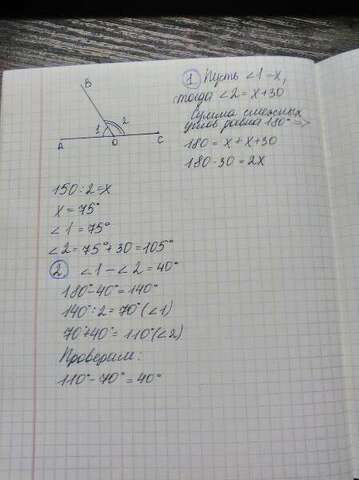 B
1
2
A
O
C
1 Пусть ∠1 - x,
тогда ∠2 = x + 30
Сумма смежных
углов равна 180° =>
180 = x + x + 30
180 - 30 = 2x
150 : 2 = x
x = 75°
∠1 = 75°
∠2 = 75° + 30 = 105°
2 ∠1 - ∠2 = 40°
180° - 40° = 140°
140° : 2 = 70° (∠1)
70° + 40° = 110° (∠2)
Проверим:
110° - 70° = 40°